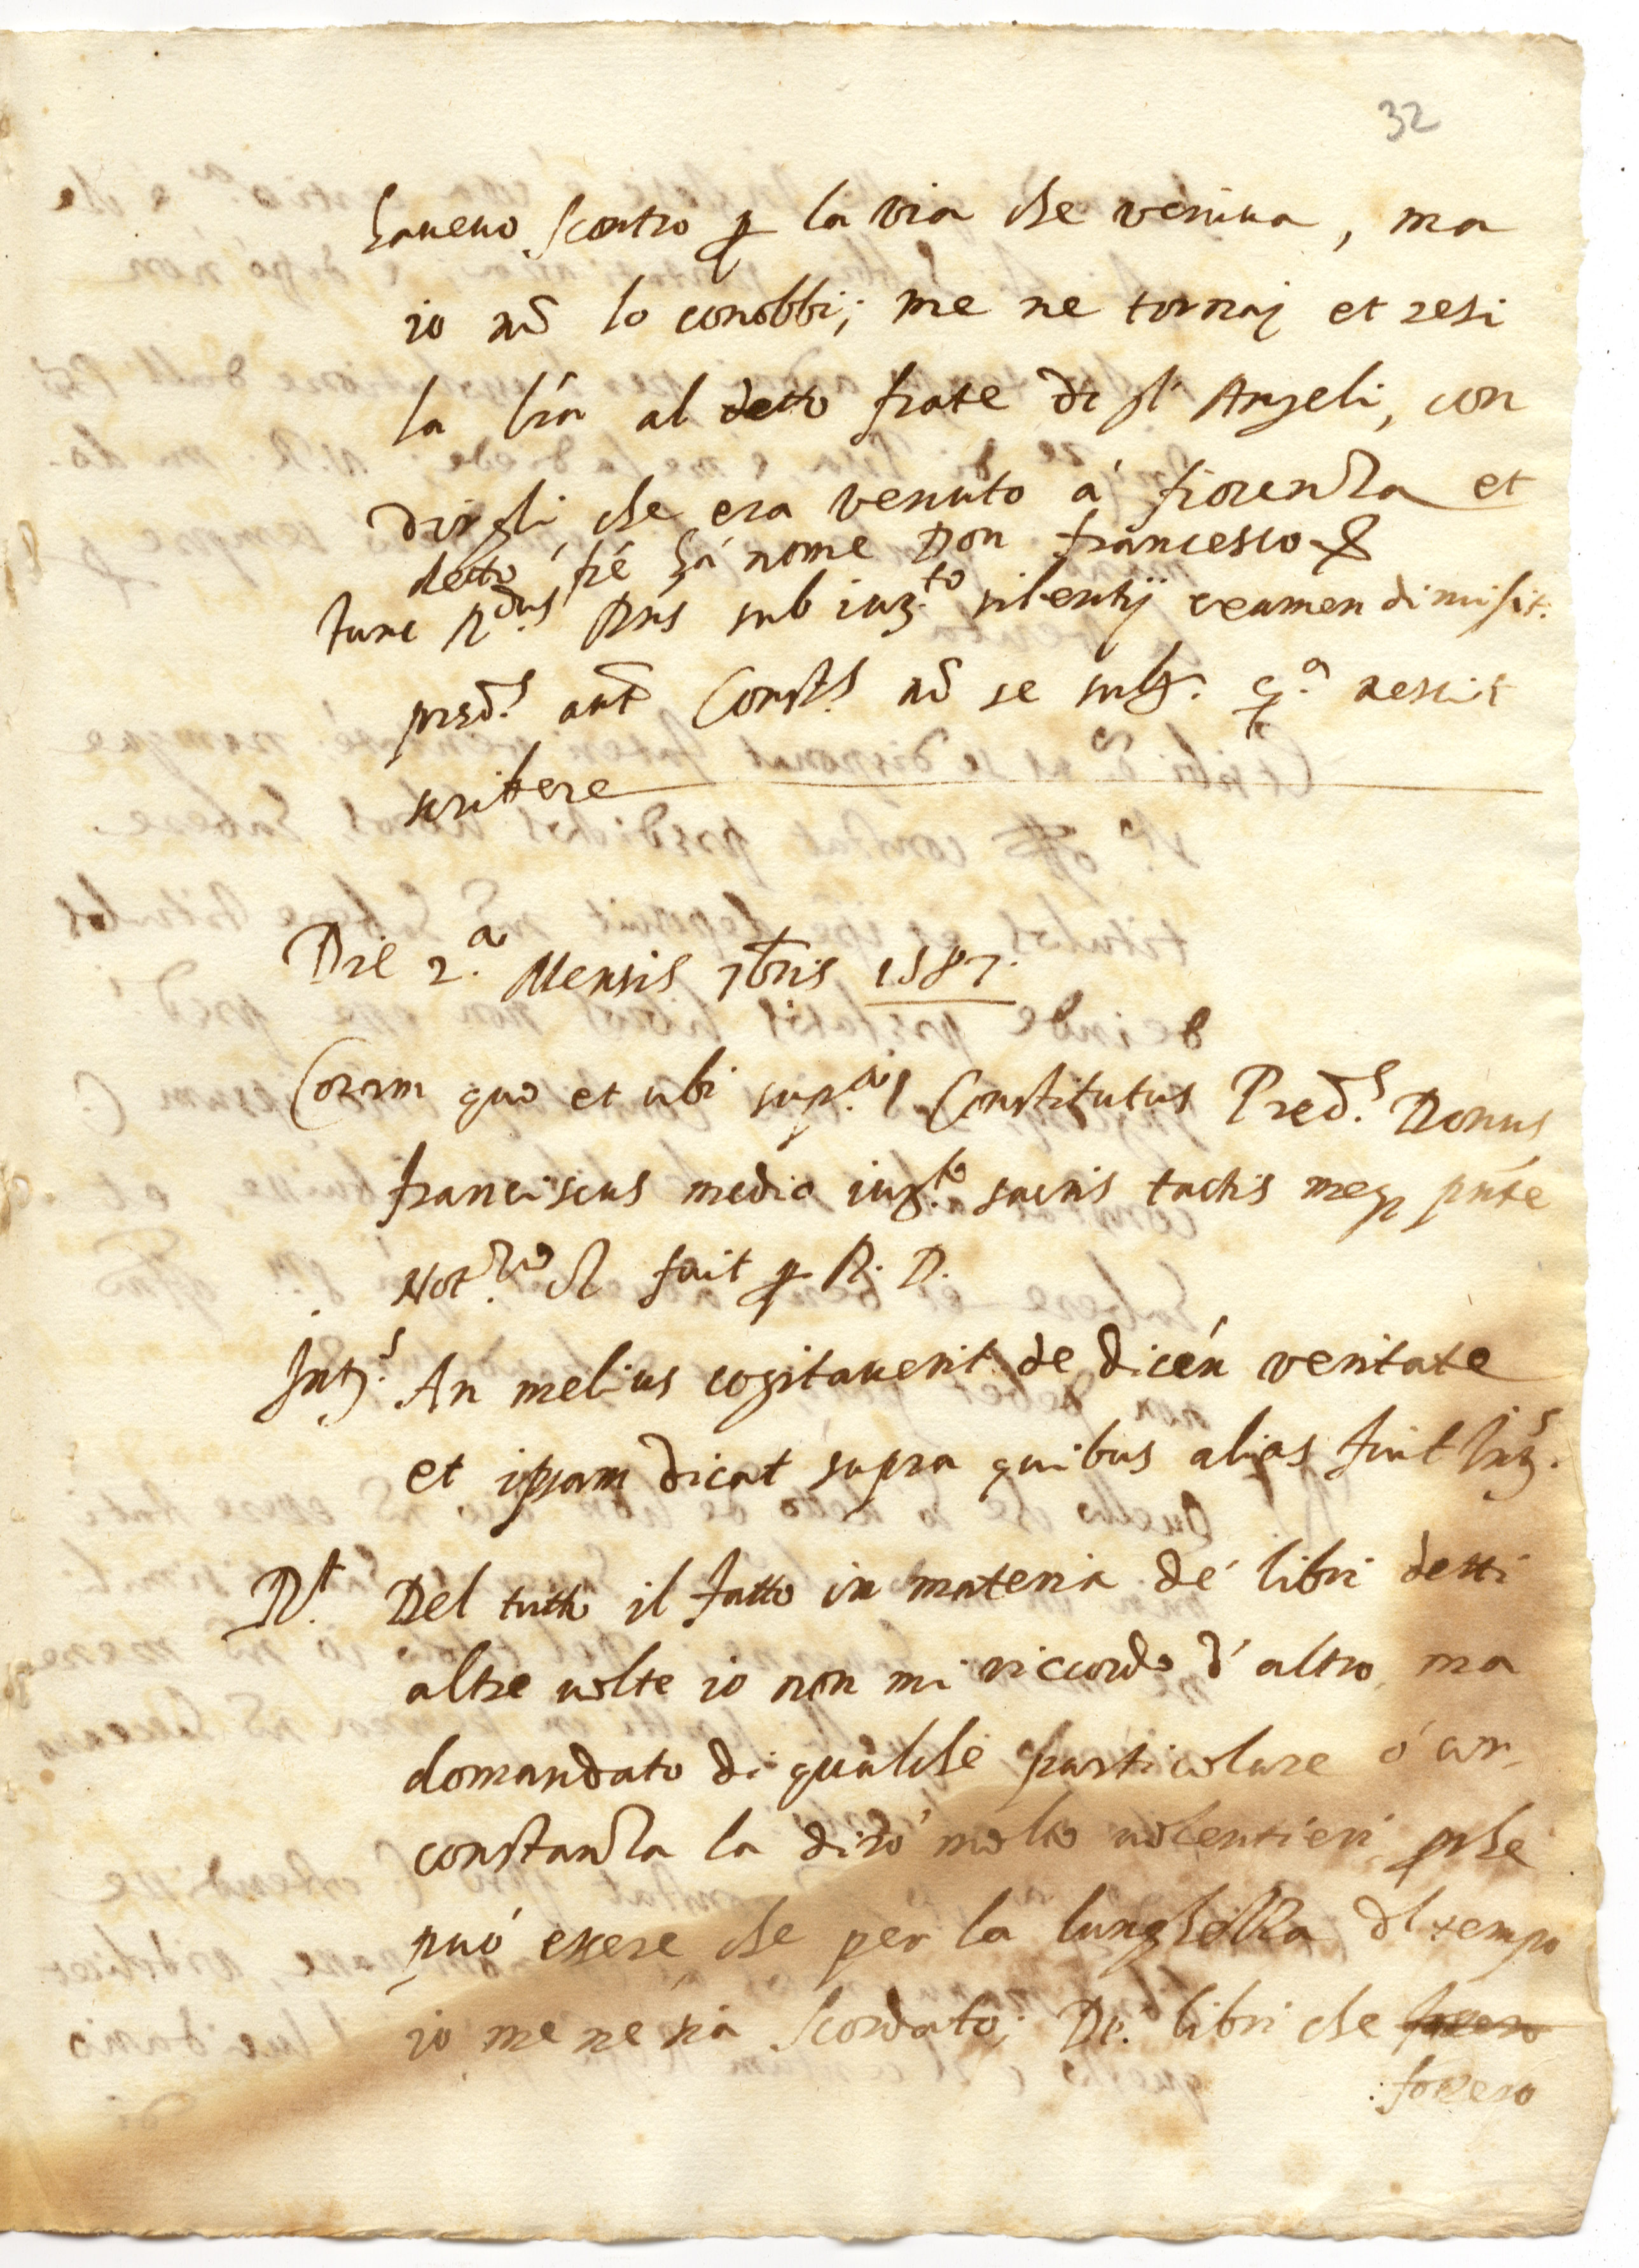 32
haueuo scontro p la via che veniua, ma
io nō lo conobbi; me ne tornaj et resi
la lr̄a al detto frate di sti Angeli, con
dirgli che era venuto á fiorenza et
detto frē há nome Don francesco
Tunc R.dus Dns sub iur.to silentij examen dimisit.
pred.s aut Const.s nō se sub. q.a nescit
scribere
Die 2.a Mensis 7bris 1587.
Coram quo et ubi sup.a Constitutus Pred.s Donus
franciscus medio iur.to sacris tactis meq pnte
Not.rio fuit p R. D.
Int.s An melius cogitauerit de dicen veritate
et ipsam dicat supra quibus alias fuit Int.s
R.t Del tutto il fatto in materia de' libri detti
altre uolte io non mi riccordo d'altro, ma
domandato di qualche particolare ó cir-
constanza la diró molto uolentieri, pche
puó essere che per la lunghezza dl tempo
io me ne sia scordato; De' libri che
forero